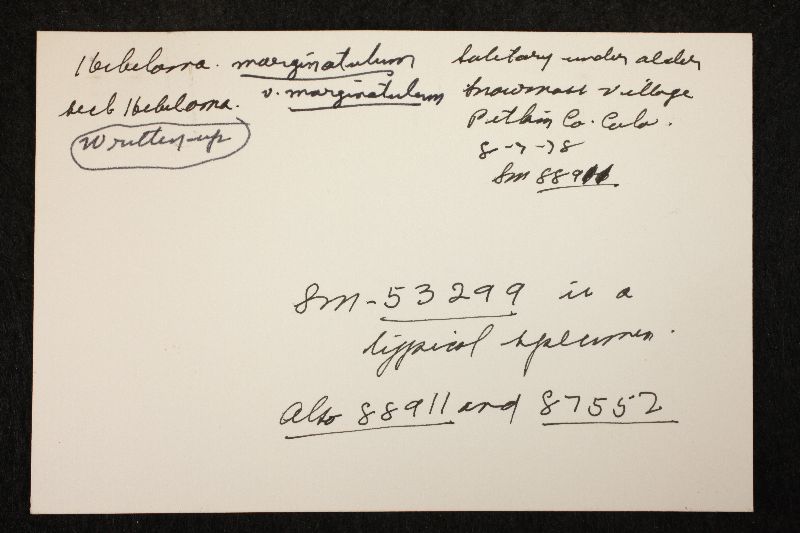 Hebeloma. marginatulum
v. marginatulum
sect Hebeloma.
Written-up
Solitary under alder
Snowmass Village
Pitkin Co. Colo.
8-7-78
Sm 88911
Sm-53299 is a
typical specimen.
Also 88911 and 87552